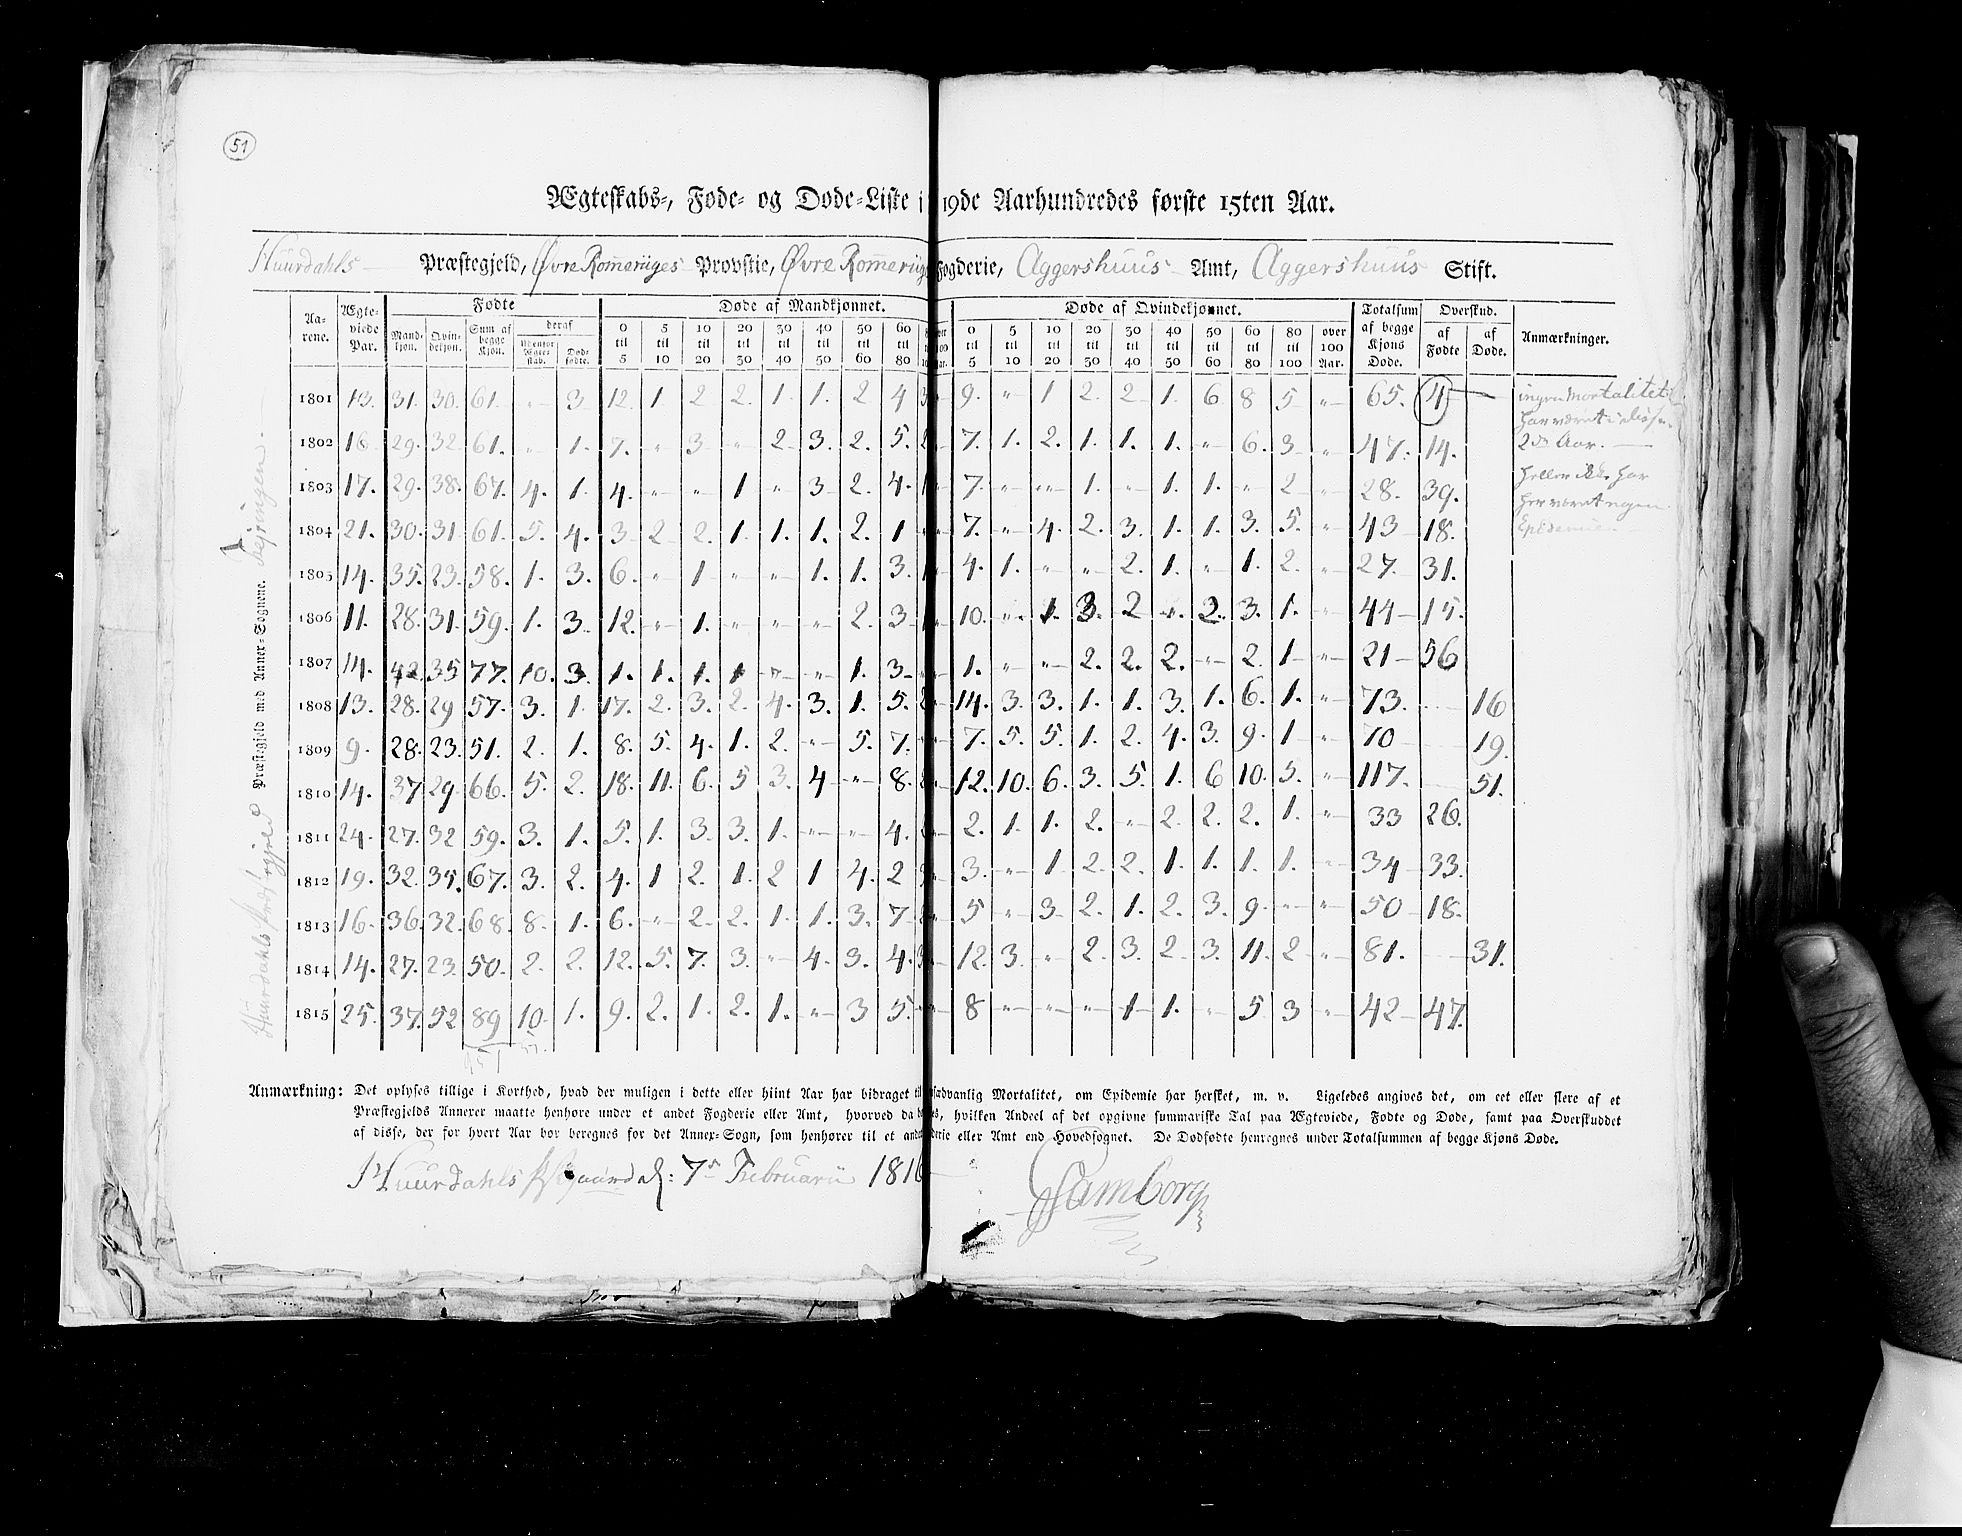 51
Ægteskabs-, Føde- og Døde-Liste i 19de Aarhundredes første 15ten Aar.
Huurdahls Præstegjeld, Øvre Romeriiges Provstie, Øvre Romeriiges Fogderie, Aggershuus Amt, Aggershuus Stift.
Aarene. Ægteviede Par. Fødte Døde af Mandkjønnet. Døde af Qvindekjønnet. Totalsum af begge Kjøns Døde. Overskud. Anmærkninger.
Mandkjøn. Qvindekjøn. Sum af begge Kjøn. deraf Udenfor Ægteskab. Dødfødte. 0 til 5 5 til 10 10 til 20 20 til 30 30 til 40 40 til 50 50 til 60 60 til 80 0 til 5 5 til 10 10 til 20 20 til 30 30 til 40 40 til 50 50 til 60 60 til 80 80 til 100 over 100 Aar. af Fødte af Døde.
Huurdahls Præstegjeld med Annex-Sognene.
1801 13. 31. 30. 61. " 3 12. 1 2 2. 1 1. 2 4 9. " 1 2. 2 1. 6 8 5 " 65. 4 ingen Mortalitet
har været i disse
1802 16 29. 32 61. " 1. 7. " 3 " 2 3. 2. 5. 7. 1. 2. 1. 1. 1. " 6. 3 " 47. 14. 2de Aar.
1803 17. 29. 38. 67. 4. 1. 4. " " 1 " 3 2. 4. 7. " " 1. " 1. 1. " 2 " 28. 39. heller ikke har
her været nogen
1804 21. 30. 31 61. 5. 4. 3 2 2. 1 1. 1. 2. 1 7. " 4. 2. 3. 1. 1. 3. 5. " 43 18. Epidemie.
1805 14. 35. 23. 58. 1. 3. 6. " 1 " " 1. 1. 3. 4. 1. " " 2. 1. " 1. 2. " 27. 31.
1806 11. 28. 31. 59. 1. 3. 12. " 1. " " " 2. 3 10. " 1. 3. 2 " 2. 3. 1. " 44 15.
1807 14. 42. 35 77. 10. 3. 1. 1. 1. 1 " " 1. 3 1. " " 2. 2. 2. " 2. 1 " 21 56
1808 13. 28. 29 57. 3. 1. 17. 2. 3. 2. 4. 3. 1. 5. 14. 3. 3. 1. 1. 3. 1. 6. 1. " 73. 16
1809 9. 28. 23. 51. 2. 1. 8. 5. 4. 1. 2. " 5. 7. 7. 5. 5. 1. 2. 4. 3. 9. 1 " 70 19.
1810 14. 37 29. 66. 5. 2. 18. 11. 6. 5 3. 4 " 8. 12. 10. 6. 3. 5. 1. 6 10. 5. " 117. 51.
1811 24. 27. 32 59. 3. 1. 5. 1. 3. 3. 1. " " 4. 2. 1. 1. 2. " 2. 2. 2. 1. " 33 26.
1812 19. 32. 35. 67. 3. 2. 4. 1 2. 1. 2 1 4. 2 3. " 1 2. 2. 1. 1. 1. 1. " 34 33.
1813 16. 36. 32. 68. 8. 1. 6. " 2. 2. 1. 1. 3. 7 5 " 3. 2. 1. 2. 3. 9. " " 50 18.
1814 14. 27. 23. 50. 2. 2. 12. 5. 7. 3. " 4. 3. 4. 12 3. " 2. 3. 2. 3. 11. 2 " 81. 31.
1815 25. 37. 52 89 10. 1. 9. 2. 1. 2. 1. " 3 5. 8 " " " 1 1. " 5. 3 " 42 47.
Anmærkning: Det oplyses tillige i Korthed, hvad der muligen i dette eller hiint Aar har bidraget til usædvanlig Mortalitet, om Epidemie har hersket, m. v. Ligeledes angives det, om eet eller flere af et
Præstegjelds Annexer maatte henhøre under et andet Fogderie eller Amt, hvorved da hvilken Andeel af det opgivne summariske Tal paa Ægteviede, Fødte og Døde, samt paa Overskuddet
af disse, der for hvert Aar bør beregnes for det Annex-Sogn, som henhører til et andet Fogderie eller Amt end Hovedsognet. De Dødfødte henregnes under Totalsummen af begge Kjøns Døde.
Huurdahls 7de Februarii 1816